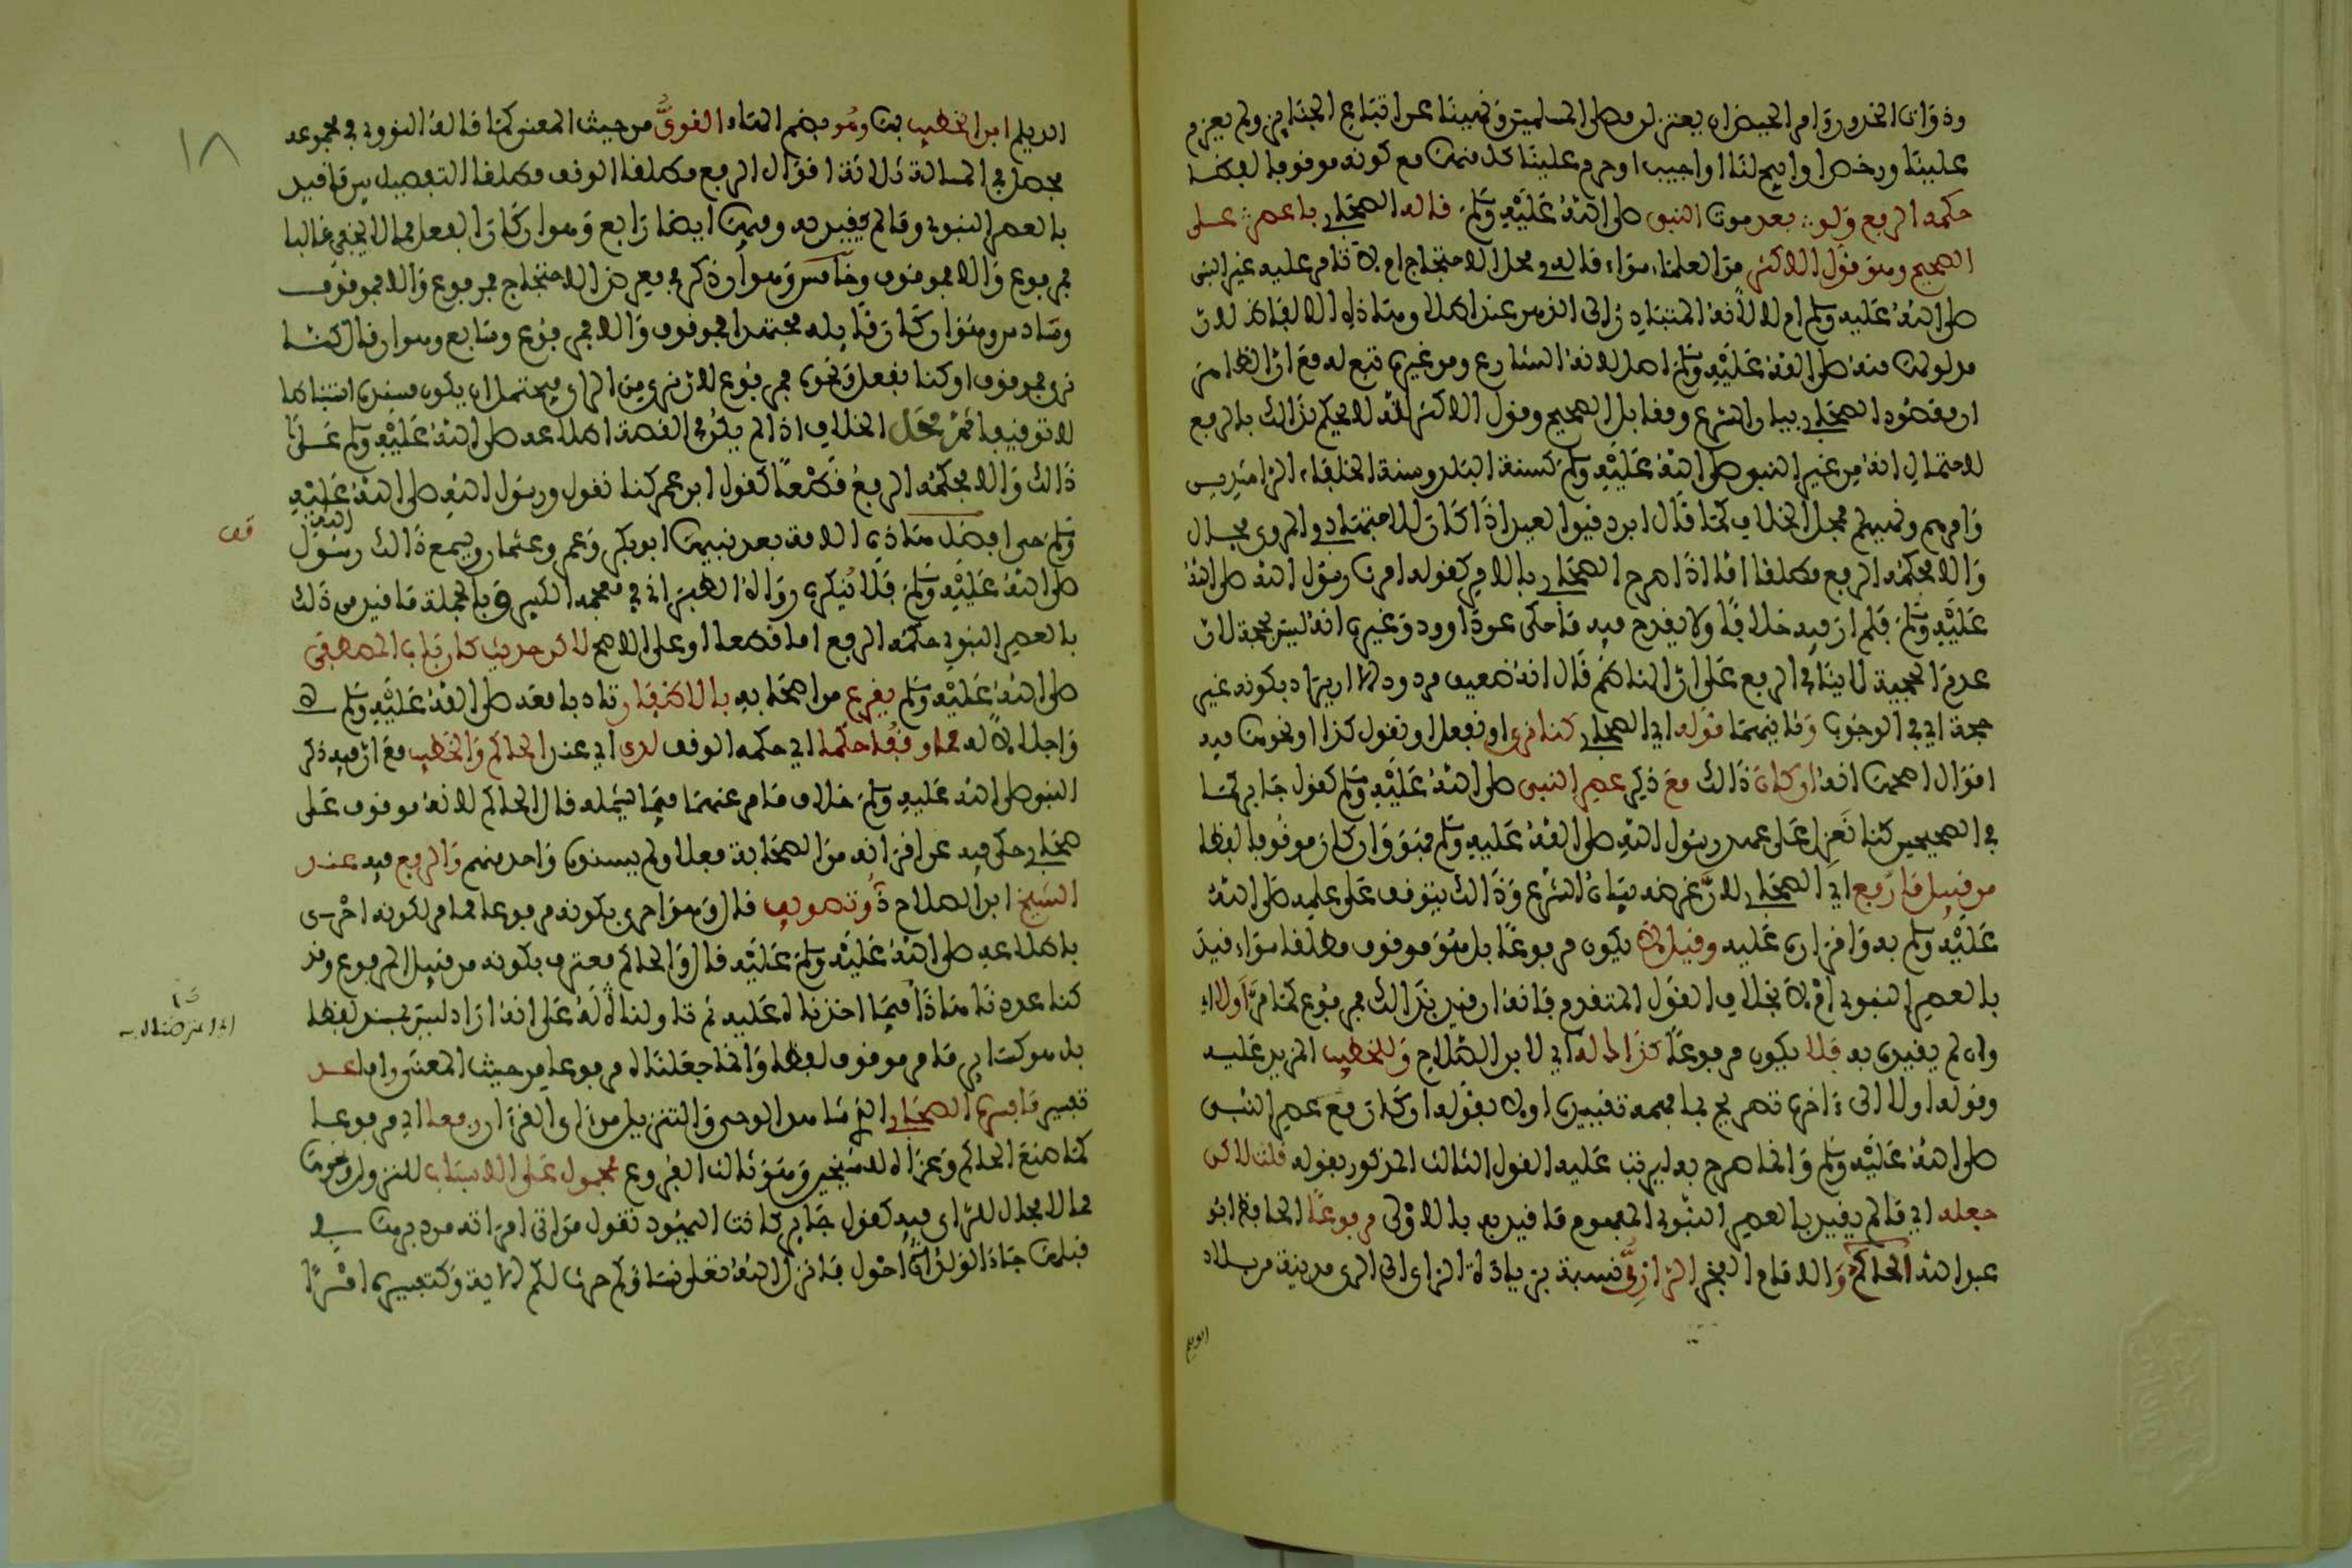 وذوات الخدور وامر الحيض ان يعتزلن مصلى المسلمين ونهينا عن اتباع الجنائز ولم يعزم
علينا ورخص او ابيح لنا او اوجب او حرم علينا كل منهما مع كونه موقوفا لفظا
حكمه الرفع ولو بعد موت النبي صلى الله عليه وسلم قاله الصحابي باعصر على
الصحيح وهو قول الاكثر من العلماء سواء قاله في محل الاحتجاج ام لا تامر عليه غير النبي
صلى الله عليه وسلم ام لا لانه المتبادر الى الذهن عند اطلاق هذه الالفاظ لان
مدلولها منه صلى الله عليه وسلم اصل لانه الشارع ومن غيره تبع له مع ان الظاهر
ان مقصود الصحابي بيان الشرع ومقابل الصحيح وقول الاكثر انه لا يحكم بذالك بالرفع
لاحتمال انه من غير النبي صلى الله عليه وسلم كسنة البلد وسنة الخلفاء الراشدين
وامرهم ونهيهم محل الخلاف كما قال ابن دقيق العيد اذا كان للاجتهاد في المروي مجال
والا فحكمه الرفع مطلقا اما اذا صرح الصحابي بالامر كقوله امرنا رسول الله صلى الله
عليه وسلم فلم ار فيه خلافا ولا يقدح فيه ما حكي عن داوود وغيره انه ليس بحجة لان
عدم الحجية لا ينافي الرفع على ان الناظم قال انه ضعيف مردود الا ان يراد بكونه غير
حجة اي في الوجوب وثانيهما قوله اي الصحابي كنا نرى او نفعل او نقول كذا او نحوها فيه
اقوال اصحها انه ان كان ذالك مع ذكر عصر النبي صلى الله عليه وسلم كقول جابر كما
في الصحيحين كنا نعزل على عهد رسول الله صلى الله عليه وسلم فهو وان كان موقوفا لفظا
من قبيل ما رفع اي الصحابي لان غرضه بيان الشرع وذالك يتوقف على علمه صلى الله
عليه وسلم به واقراره عليه وقيل لا يكون مرفوعا بل هو موقوف مطلقا سواء قيد
بالعصر النبوي ام لا بخلاف القول المتقدم فانه ان قيد بذالك مرفوع كما مر او لا اي
وان لم يقيده به فلا يكون مرفوعا كذا له اي لابن الصلاح وللخطيب المزيد عليه
وقوله او لا الى ءاخره تصريح بما افهمه تقييده اولا بقوله ان كان مع عصر النبي
صلى الله عليه وسلم وانما صرح به ليرتب عليه القول الثالث المذكور بقوله قلت لاكن
جعله اي ما لم يقيد بالعصر النبوي المفهوم ما قيد به بالاولى مرفوعا الحافظ ابو
عبد الله الحاكم والامام الفخر الرازي نسبة بزيادة الزاي الى الري مدينة من بلاد
الديلم
الديلم ابن الخطيب بها وهو بضم الهاء القوي من حيث المعنى كما قاله النووي في مجموعه
فحصل في المسالة ثلاثة اقوال الرفع مطلقا الوقف مطلقا التفصيل بين ما قيد
بالعصر النبوي وما لم يقيد به وفيها ايضا رابع وهو ان كان الفعل مما لا يخفى غالبا
فمرفوع والا فموقوف وخامس وهو ان ذكر في معرض الاحتجاج فمرفوع والا فموقوف
وسادس وهو ان كان قايله مجتهدا فموقوف والا فمرفوع وسابع وهو ان قال كنا
نرى فموقوف او كنا نفعل ونحوه فمرفوع لان نرى من الراي فيحتمل ان يكون مستنده استنباطا
لا توقيفا ثم محل الخلاف اذا لم يكن في القصة اطلاعه صلى الله عليه وسلم على
ذالك والا فحكمه الرفع قطعا كقول ابن عمر كنا نقول ورسول الله صلى الله عليه
وسلم حي افضل هاذه الامة بعد نبيها ابو بكر وعمر وعثمان ويسمع ذالك رسول الله
صلى الله عليه وسلم فلا ينكره رواه الطبراني في معجمه الكبير وبالجملة ما قيد من ذلك
بالعصر النبوي حكمه الرفع اما قطعا او على الاصح لاكن حديث كان باب المصطفى
صلى الله عليه وسلم يقرع من اصحابه بالاظفار تادبا معه صلى الله عليه وسلم
واجلالا له مما وقفا حكما اي حكمه الوقف لدى اي عند الحاكم والخطيب مع ان فيه ذكر
النبي صلى الله عليه وسلم خلاف ما مر عنهما فيما يشمله قال الحاكم لانه موقوف على
صحابي حكى فيه عن اقرانه من الصحابة فعلا ولم يسنده واحد منهم والرفع فيه عند
الشيخ ابن الصلاح ذو تصويب قال وهو احرى بكونه مرفوعا مما مر لكونه احرى
باطلاعه صلى الله عليه وسلم عليه قال والحاكم معترف بكونه من قبيل المرفوع وقد
كنا عددنا هاذا فيما اخذناه عليه ثم تاولناه له على انه اراد ليس بمسند لفظا
بل هو كساير ما مر موقوف لفظا وانما جعلناه مرفوعا من حيث المعنى واما عد
تفسير ما فسره الصحابي الذي شاهد الوحي والتنزيل من اي القرءان رفعا اي مرفوعا
كما صنع الحاكم وعزاه للشيخين وهو ثالث الفروع فمحمول على الاسباب للنزول ونحوها
مما لا مجال للراي فيه كقول جابر كانت اليهود تقول من اتى امراته من دبرها في
قبلها جاء الولد احول فانزل الله تعلى نساؤكم حرث لكم الاية وكتفسيره امرا
١٨
قف